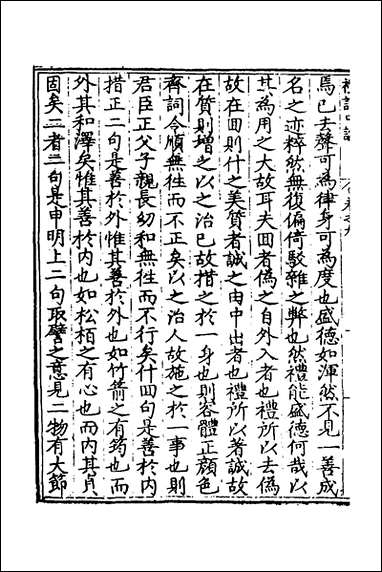 焉已去聲可為律身可為度也盛德如渾然不見一善成
名之迹粹然無復偏倚駁雜之弊也然禮能盛德何哉以
其為用之大故耳夫回者偽之自外入者也禮所以去偽
故在回則什之美質者誠之由中出者也禮所以著誠故
在質則增之以之治已故措之於一身也則容體正顏色
齊詞令順無徃而不正矣以之治人故施之於一事也則
君臣正父子親長幼和無徃而不行矣什回句是善於內
措正二句是善於外惟其善於外也如竹箭之有筠也而
外其和澤矣惟其善於內也如松栢之有心也而內其貞
固矣二者二句是申明上二句取譬之意見二物有大節